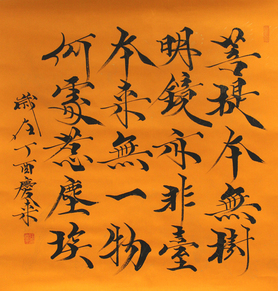 菩提本無樹
明鏡亦非臺
本来無一物
何處惹塵埃
歲在丁酉慶来